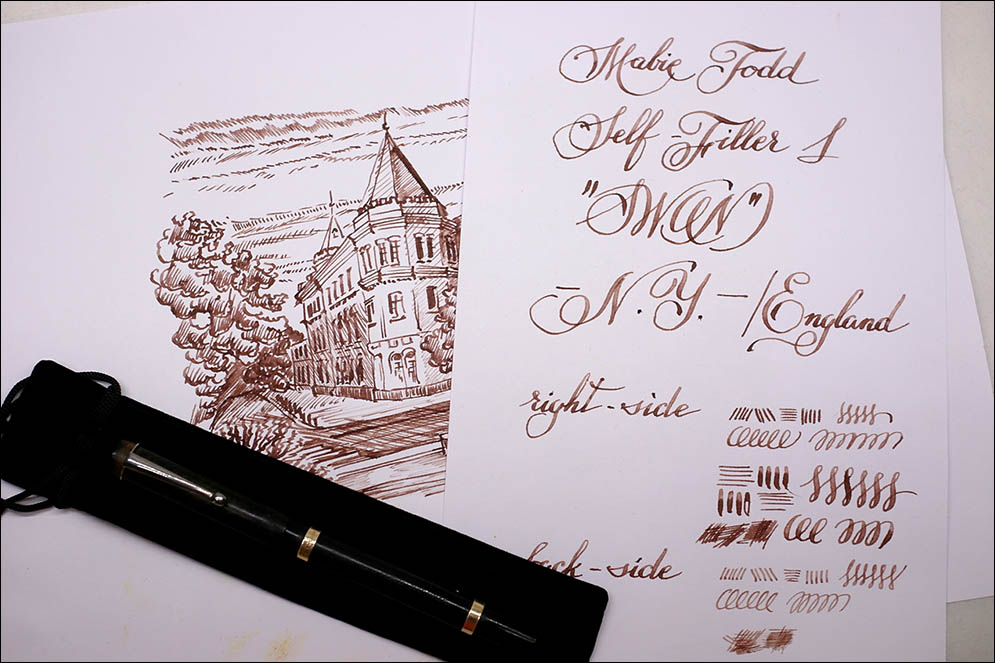 Mabie Todd
Self-Filler 1
"SWAN"
-N.Y.-/England
right-side
back-side